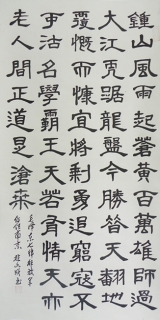 鍾山風雨起蒼黃百萬雄師過
大江虎踞龍盤今勝昔天翻地
覆慨而慷宜將剩勇追窮寇不
可沽名學霸王天若有情天亦
老人間正道是滄桑
毛澤東七律